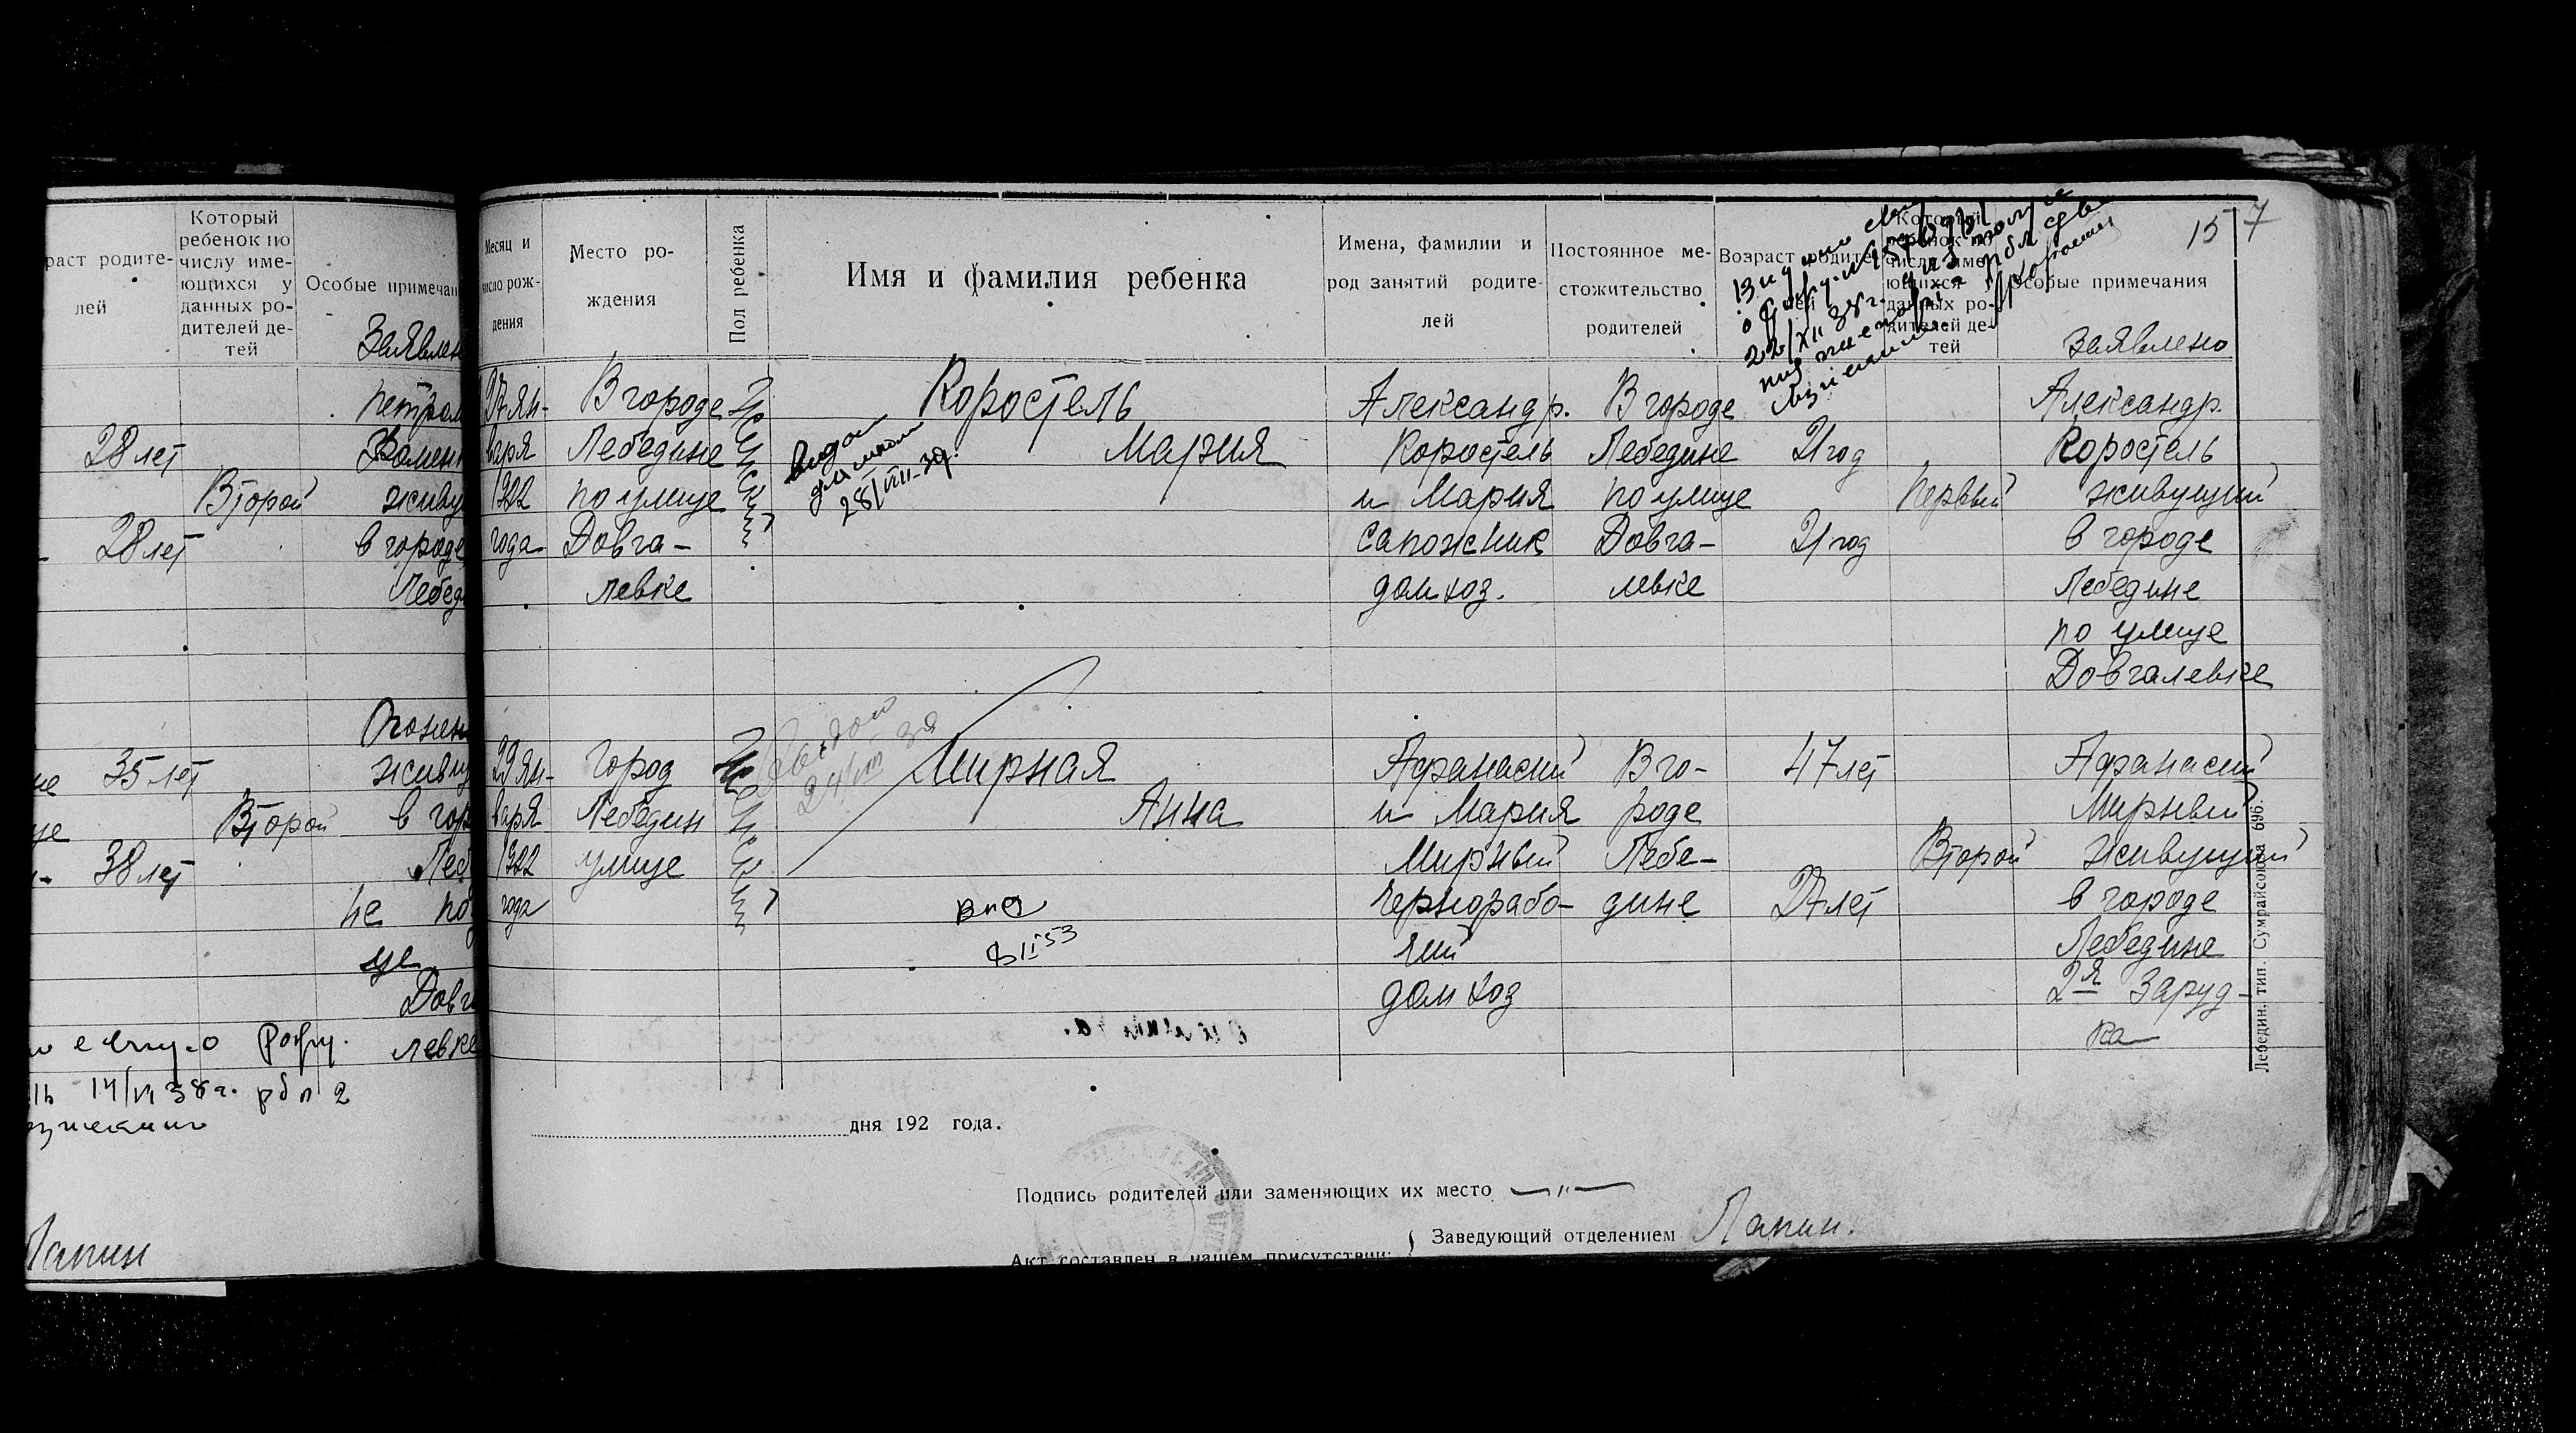 раст родите-
лей
Который
ребенок по
числу име-
ющихся у
данных ро-
дителей де-
тей
Особые примечан
Заявлен
28 лет
Второй
живу
28 лет
в городе
Лебед
35 лет
живу
Второй
в гор
38 лет
Леб
не
Довг
левке
14/VI 38 г.
Лапин
15 7
Месяц и
число рож-
дения
Место ро-
ждения
Пол ребенка
Имя и фамилия ребенка
Имена, фамилии и
род занятий родите-
лей
Постоянное ме-
стожительство
родителей
Возраст родите
лей
Который
ребенок по
числу име
ющихся
данных ро-
дителей де-
тей
Особые примечания
заявлено
27 ян-
варя
1922
года
В городе
Лебедине
по улице
Довга-
левке
Женский
Коростель
Мария
28/VIII-39.
Александр.
Коростель
и Мария
сапожник
дом хоз.
В городе
Лебедине
по улице
Довга-
левке
21 год
21 год
первый
Александр.
Коростель
живущий
в городе
Лебедине
по улице
Довгалевке
29 ян-
варя
1922
года
город
Лебедин
улице
Женский
Мирная
Анна
8 II 53
Афанасий
и Мария
Мирный
Чернорабо-
чий
дом хоз
В го-
роде
Лебе-
дине
47 лет
27 лет
Второй
Афанасий
Мирный
живущий
в городе
Лебедине
2я Заруд-
ка
Лебедин., тип. Сумрайсоюза 696.
дня 192 года.
Подпись родителей или заменяющих их место —"—
Заведующий отделением Лапин.
Акт составлен в нашем присутствии: